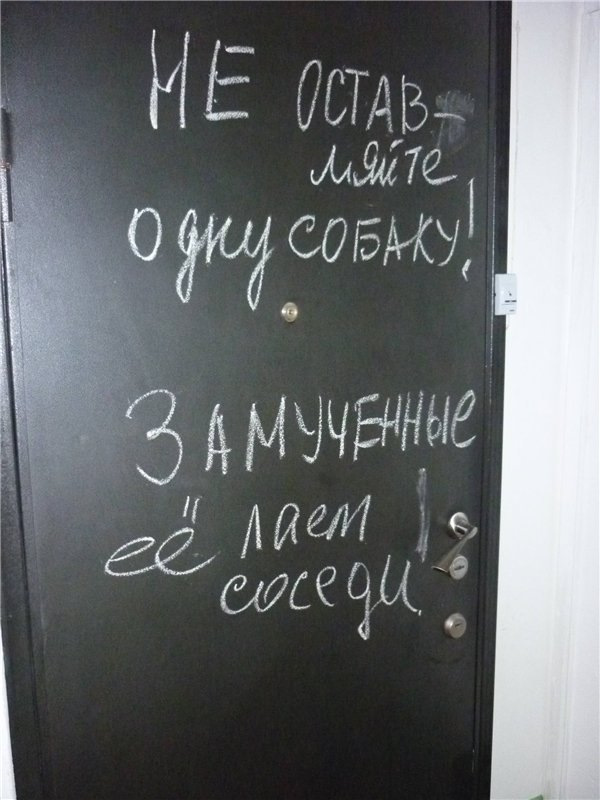 НЕ ОСТАВ-
ляйте
одну СОБАКУ!
ЗАМУЧЕННЫе
её лаем
соседи!